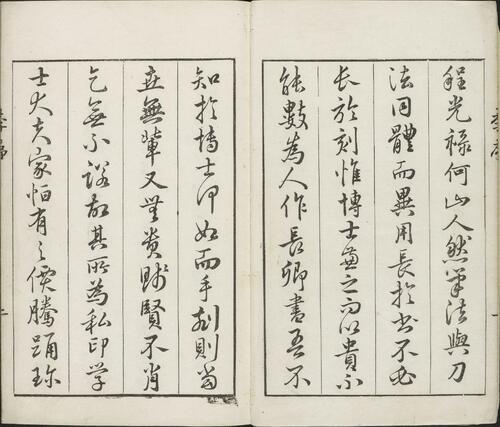 程光祿何山人然筆法與刀
法同體而異用長於書不必
長於刻惟博士兼之而以貴不
能數為人作長卿書吾不
知於博士何如而手刻則當
世無輩又無貴賤賢不肖
乞無不諾故其所為私印學
士大夫家恒有之價騰踊珍